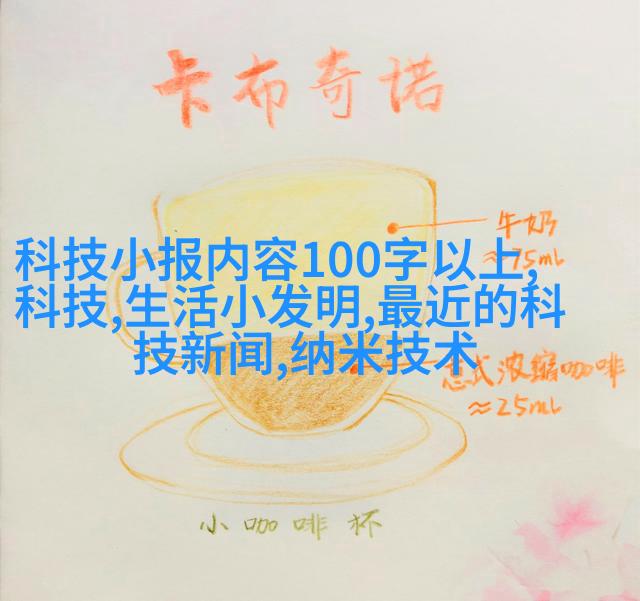 卡布奇诺
牛奶
≈75mL
科技小报内容100字以上,
科技,生活小发明,最近的科
技新闻,纳米技术
意式浓缩咖啡
≈25mL
小咖啡杯